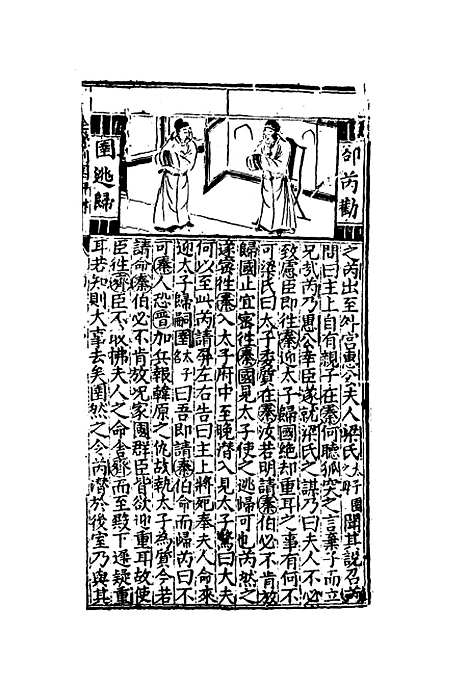 郤芮勸
圉逃歸
之芮出至外宮惠公夫人梁氏太子圉之母聞其說召芮
問曰主上自有親子在秦何聽狐突之言棄子而立
兄哉芮乃惠公幸臣遂就梁氏之謀乃曰夫人不必
致慮臣即徃秦迎太子歸國絕却重耳之事有何不
可梁氏曰太子委質在秦汝若明請秦伯必不肯放
歸國止宜密徃秦國見太子使之逃歸可也芮然之
遂密徃秦入太子府中至晚潜入見太子驚曰大夫
何以至此芮請屏左右告曰主上將死奉夫人命來
迎太子歸嗣圉太子名曰吾即請秦伯命而歸芮曰不
可秦人恐晋加兵報韓原之仇故執太子為質今若
請命秦伯必不肯放况家國群臣皆欲迎重耳故使
臣徃齊臣不敢拂夫人之命舍齊而至殿下遲疑重
耳若知則大事去矣圉然之令芮潜於後室乃與其